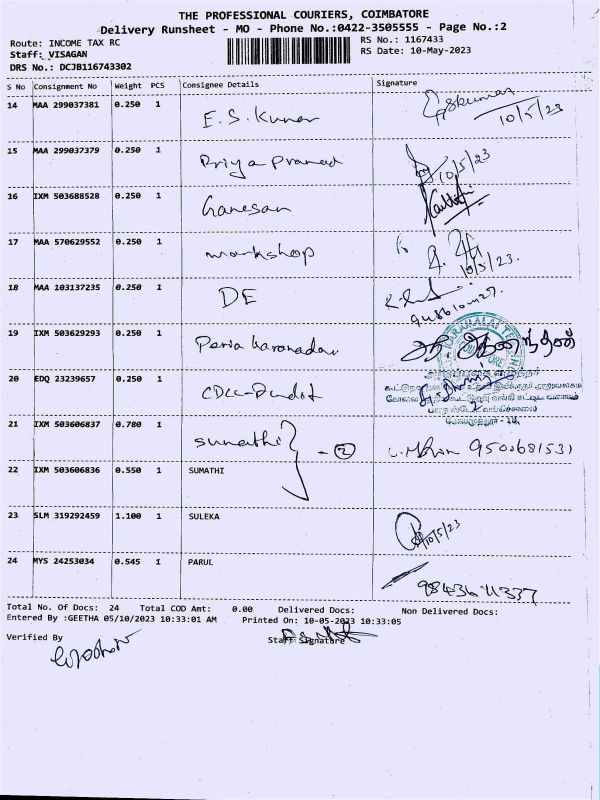 THE PROFESSIONAL COURIERS, COIMBATORE
Delivery Runsheet - MO - Phone No.:0422-3505555 - Page No.:2
Route: INCOME TAX RC
RS No.: 1167433
Staff: VISAGAN
RS Date: 10-May-2023
DRS No.: DCJB116743302
S No Consignment No Weight PCS Consignee Details Signature
14 MAA 299037381 0.250 1 E.S. Kumar
10/5/23
15 MAA 299037379 0.250 1 Priya Prasad 10/5/23
16 IXM 503688528 0.250 1 Ganesan
17 MAA 570629552 0.250 1 workshop
10/5/23.
18 MAA 103137235 0.250 1 DE
19 IXM 503629293 0.250 1 Peria
20 EDQ 23239657 0.250 1
21 IXM 503606837 0.780 1 Sumathi - 2 9500681531
22 IXM 503606836 0.550 1 SUMATHI
23 SLM 319292459 1.100 1 SULEKA 10/5/23
24 MYS 24253034 0.545 1 PARUL
Total No. Of Docs: 24 Total COD Amt: 0.00 Delivered Docs: Non Delivered Docs:
Entered By :GEETHA 05/10/2023 10:33:01 AM Printed On: 10-05-2023 10:33:05
Verified By Staff Signature